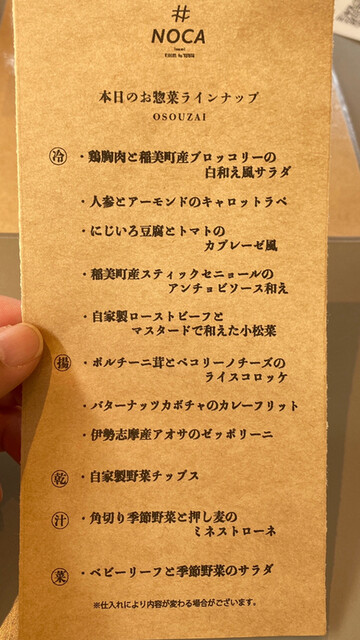 # NOCA
本日のお惣菜ラインナップ
OSOUZAI
冷 ・鶏胸肉と稲美町産ブロッコリーの
白和え風サラダ
・人参とアーモンドのキャロットラペ
・にじいろ豆腐とトマトの
カプレーゼ風
・稲美町産スティックセニョールの
アンチョビソース和え
・自家製ローストビーフと
マスタードで和えた小松菜
揚 ・ポルチーニ茸とペコリーノチーズの
ライスコロッケ
・バターナッツカボチャのカレーフリット
・伊勢志摩産アオサのゼッポリーニ
乾 ・自家製野菜チップス
汁 ・角切り季節野菜と押し麦の
ミネストローネ
菜 ・ベビーリーフと季節野菜のサラダ
※仕入れにより内容が変わる場合がございます。